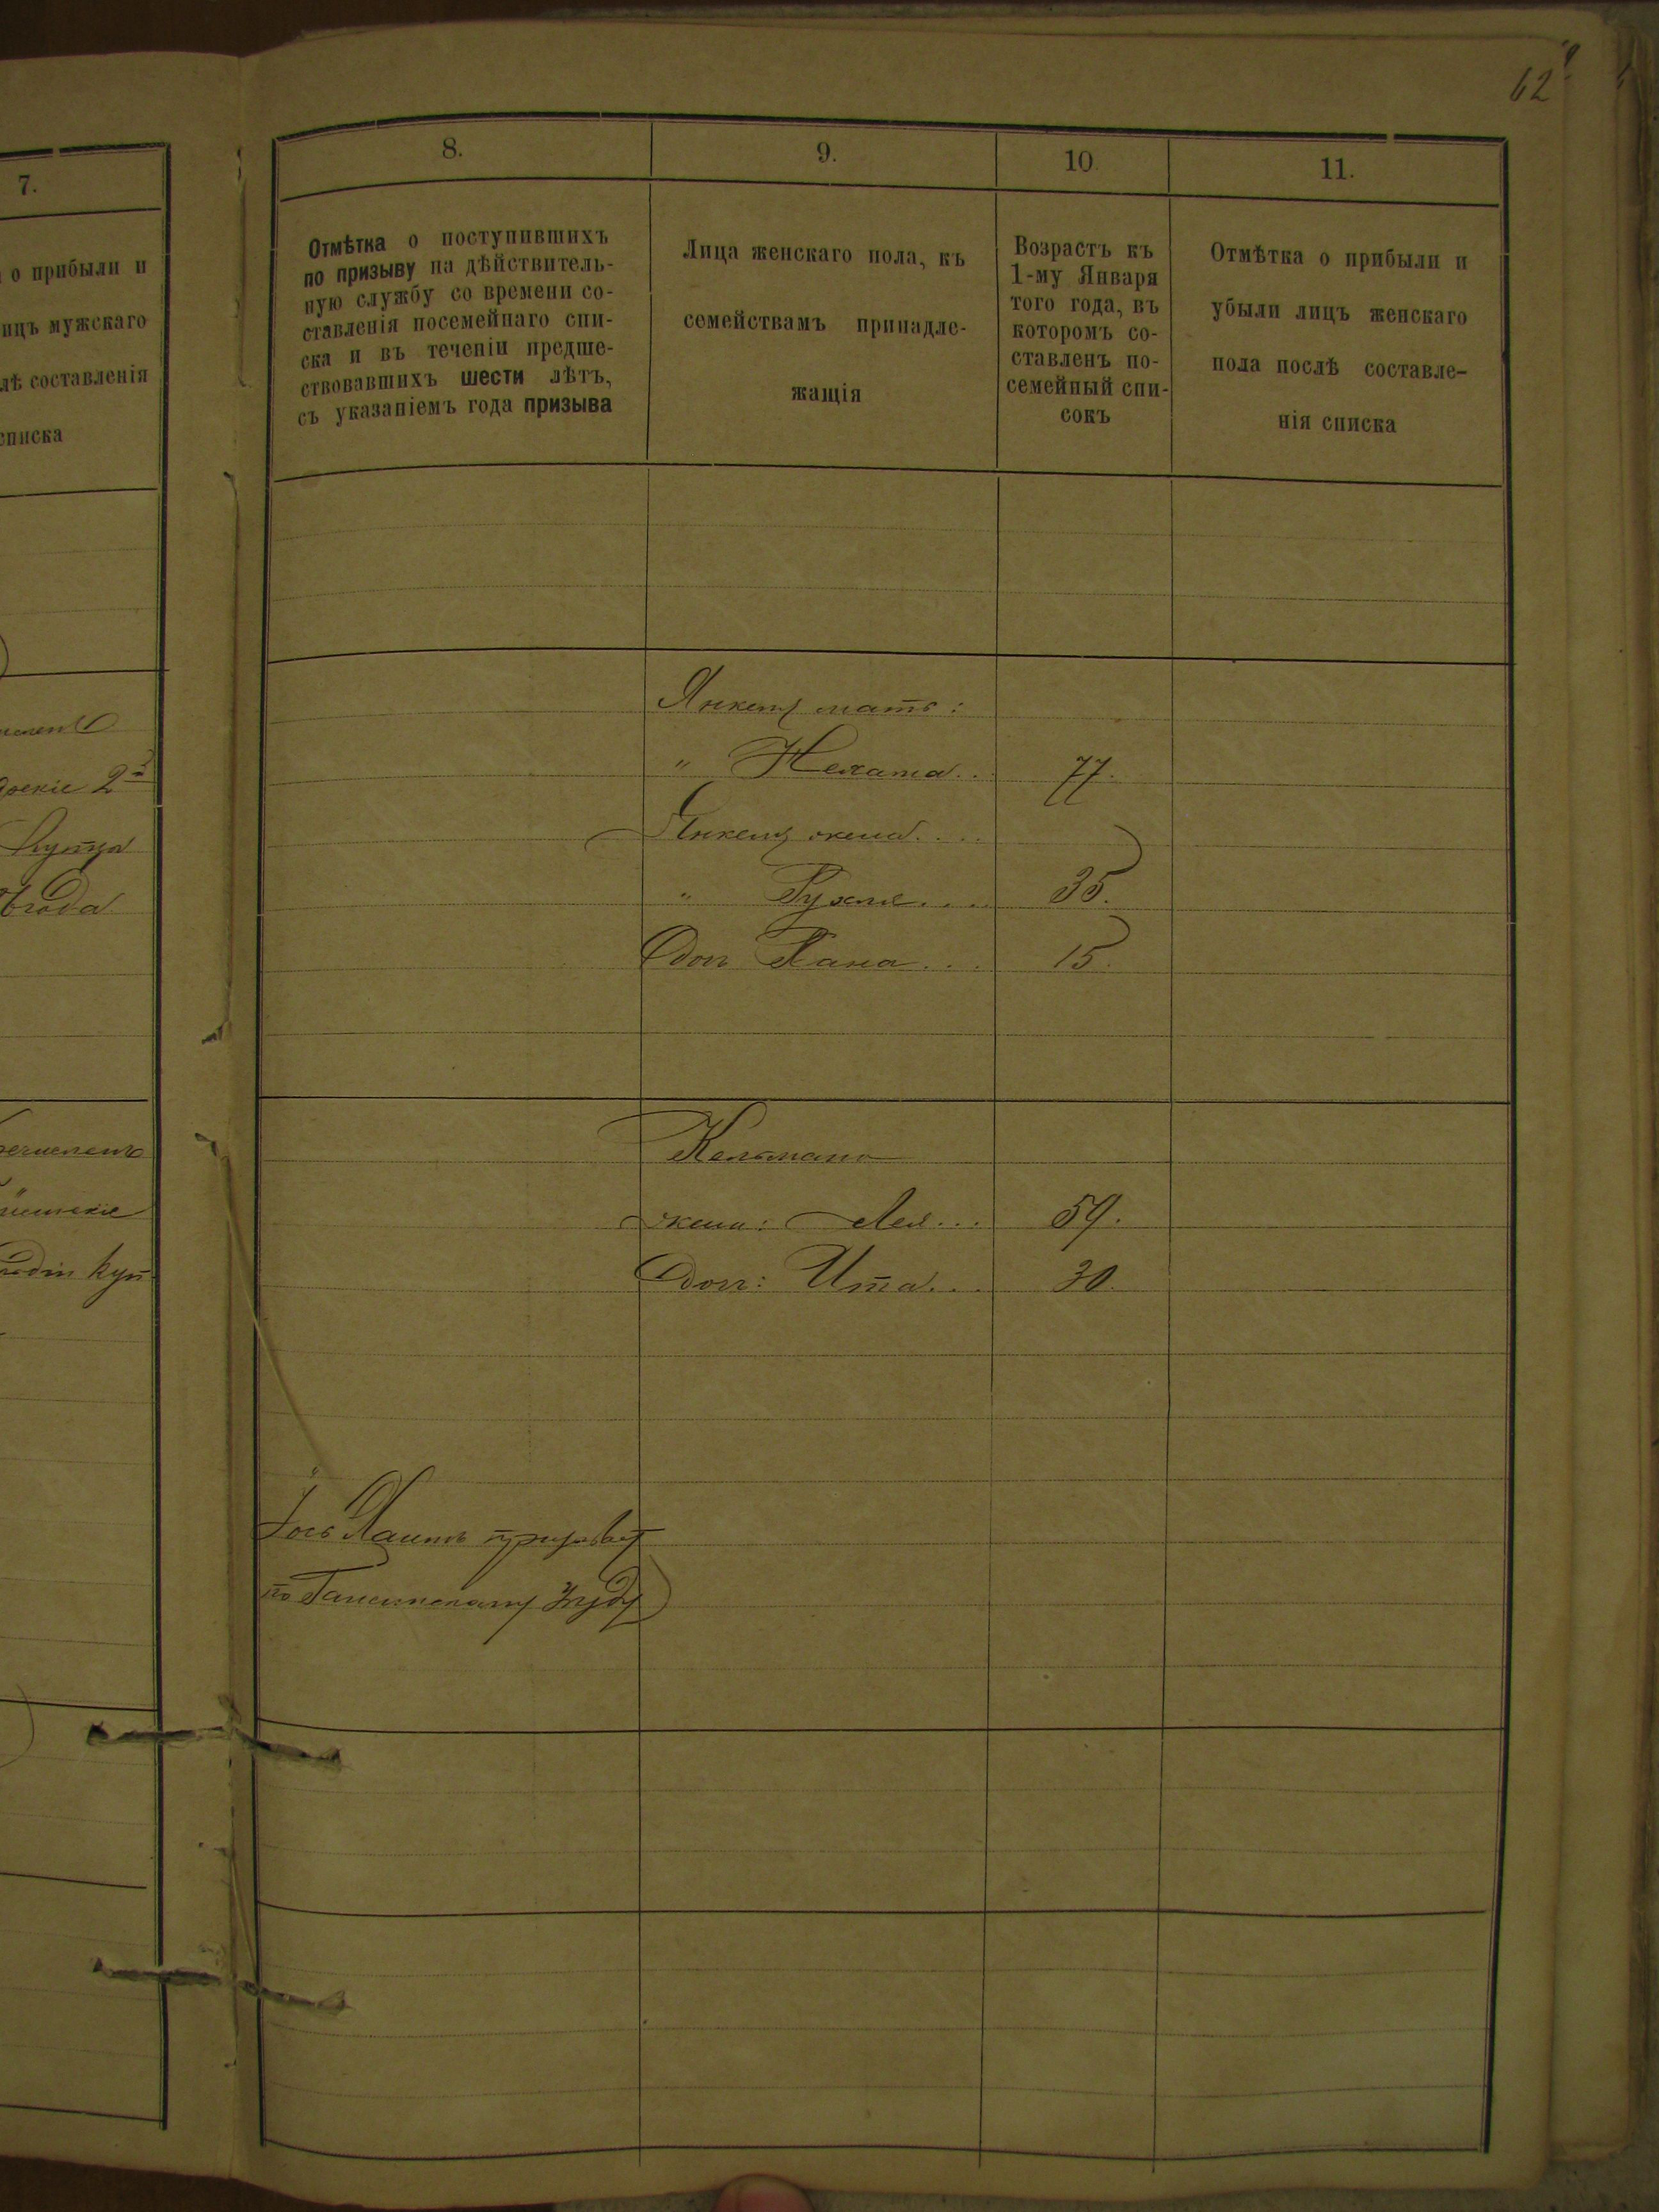 62
7.
о прибыли и
ицъ мужскаго
лѣ составленія
списка
2й
купца
года
куп
8.
Отмѣтка о поступившихъ
по призыву на дѣйствитель-
ную службу со времени со-
ставленія посемейнаго спи-
ска и въ теченіи предше-
ствовавшихъ шести лѣтъ,
съ указаніемъ года призыва
9.
Лица женскаго пола, къ
семействамъ принадле-
жащія
10
Возрастъ къ
1-му Января
того года, въ
которомъ со-
ставленъ по-
семейный спи-
сокъ
11.
Отмѣтка о прибыли и
убыли лицъ женскаго
пола послѣ составле-
нія списка
Янкеля мать:
" Нехама.. 77.
Янкеля жена....
" Рухля.... 35.
Доч Хана... 15.
Кельмана
жена: Лея... 59.
Доч: Ита... 30.
по